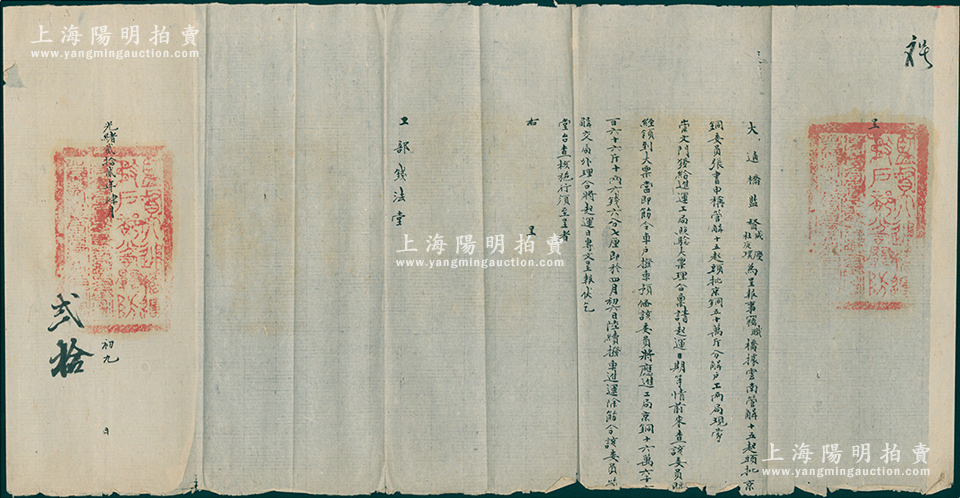 呈
大通橋監督
為呈報事竊職橋據雲南管解十五起頭批京
銅委員張曹申稱管解十五起頭批京銅五十萬斤分解戶工兩局現蒙
崇文門發給進運工局照驗大票理合稟請起運日期等情前來查該委員
到大票當即飭令車戶撥車預備該委員將應進工局京銅十六萬六千
百六十六斤十兩六錢六分七厘即於四月初六日陸續撥車進運除飭令該委員
解交局外理合將起運日專文呈報伏乞
堂台查核施行須至呈者
右 呈
工部錢法堂
光緒貳拾 年 月 初九 日
貳拾
上海陽明拍賣
www.yangmingauction.com
上海陽明拍賣
www.yangmingauction.com
上海陽明拍賣
www.yangmingauction.com
上海陽明拍賣
www.yangmingauction.com
上海陽明拍賣
www.yangmingauction.com